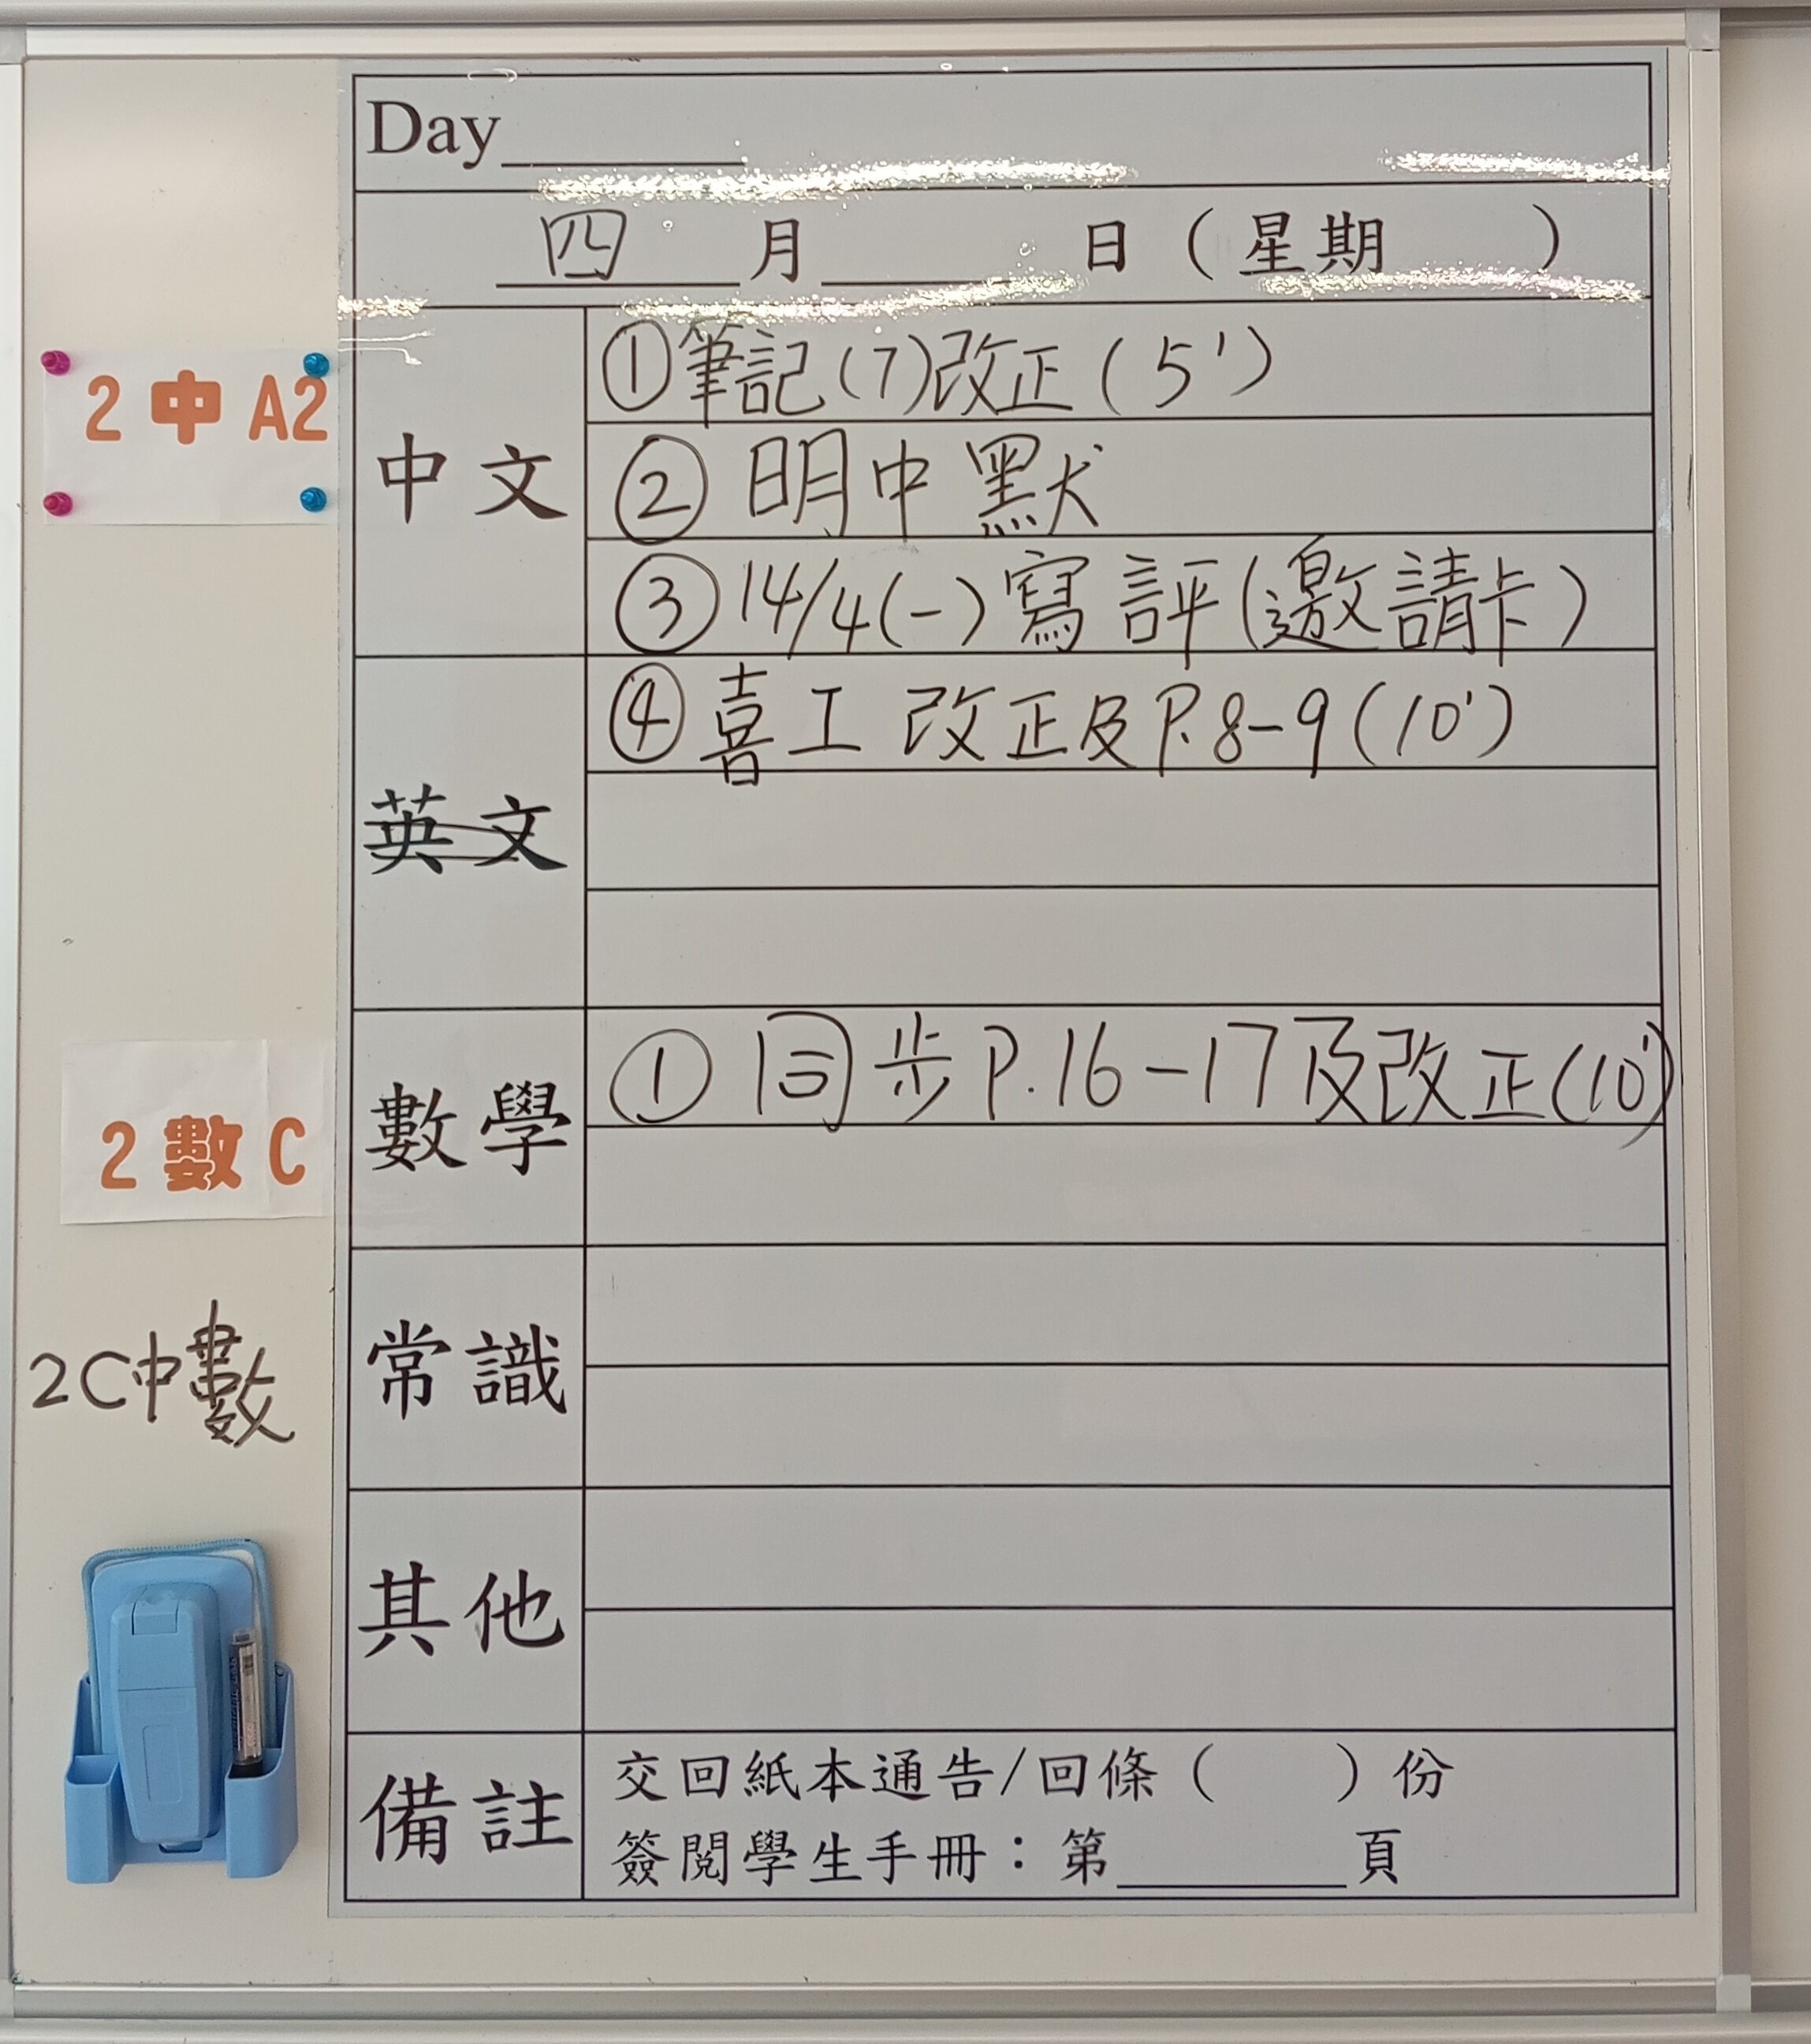 Day
四月 日（星期 ）
2 中 A2
中文
①筆記(7)改正(5')
②明中默
③14/4(一)寫評(邀請卡)
英文
④喜工改正及P.8-9(10')
2 數 C
數學
①同步P.16-17及改正(10')
2C中數
常識
其他
備註
交回紙本通告/回條（ ）份
簽閱學生手冊：第 頁